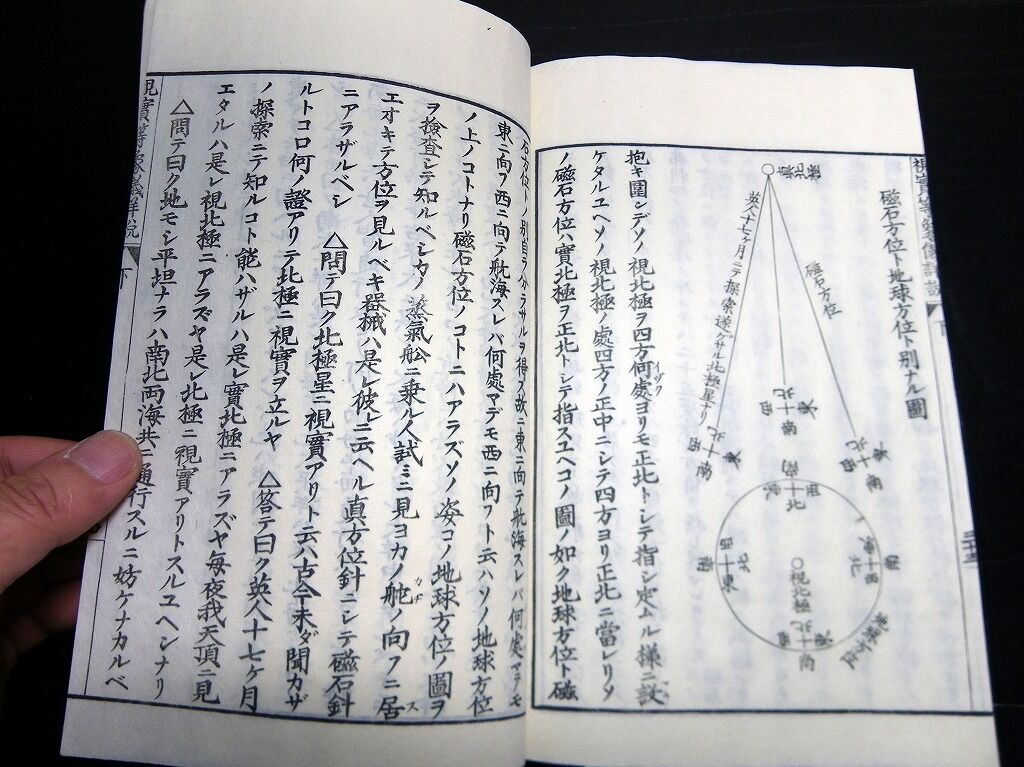 視實等象儀詳説
下
磁石方位ト地球方位ト別ナル圖
視北極
磁石方位
英人十七ヶ月ニテ探索遂ゲザル北極星ナリ
北
東
西
南
南
東
西
北
視北極
地球方位
抱キ圍シデソノ視北極ヲ四方何處ヨリモ正北トシテ指シ定ムル様ニ設
イヅク
ケタルユヘソノ視北極ノ處四方ノ正中ニシテ四方ヨリ正北ニ當レリ〆
ノ磁石方位ハ實北極ヲ正北トシテ指スユヘコノ圖ノ如ク地球方位ト磁
石方位トノ別自ラ分ラサルヲ得ス故ニ東ニ向テ航海スレバ何處マデモ
東ニ向フ西ニ向テ航海スレバ何處マデモ西ニ向フト云ハソノ地球方位
ノ上ノコトナリ磁石方位ノコトニハアラズソノ姿コノ地球方位ノ圖ヲ
ヲ檢査シテ知ルベシカノ蒸氣舩ニ乗ル人試ミニ見ヨカノ舵ノ向フニ居
カヂ
ス
エオキテ方位ヲ見ルベキ器械ハ是レ彼ニ云ヘル真方位針ニシテ磁石針
ニアラザルベシ △問テ曰ク北極星ニ視實アリト云ハ古今未ダ聞カザ
ルトコロ何ノ證アリテ北極ニ視實ヲ立ルヤ △答テ曰ク英人十七ヶ月
ノ探索ニテ知ルコト能ハザルハ是レ實北極ニアラズヤ毎夜我天頂ニ見
エタルハ是レ視北極ニアラズヤ是レ北極ニ視實アリトスルユヘンナリ
△問テ曰ク地モシ平坦ナラハ南北両海共ニ通行スルニ妨ケナカルベ
視實等象儀詳説
下